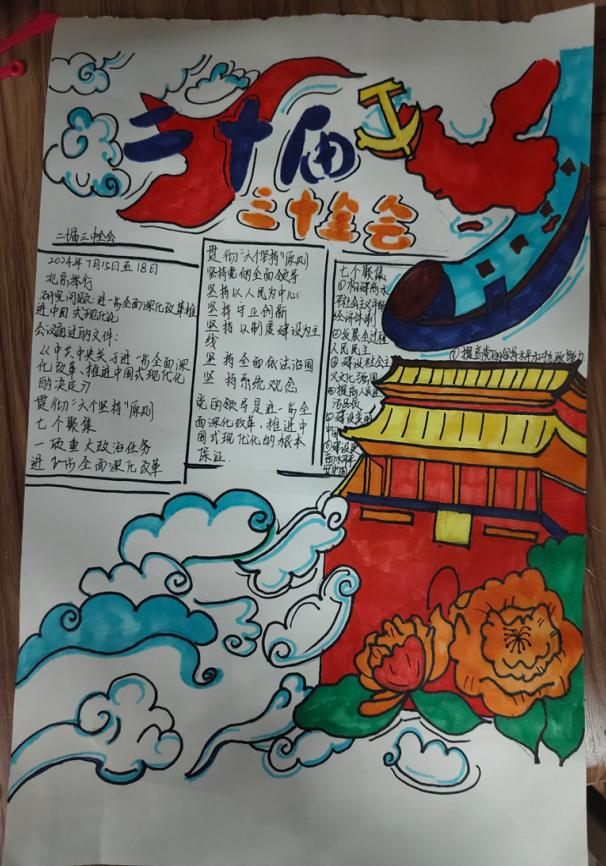 二十届
三十全会
二十届三中全会
2024年7月15日至18日
北京举行
研究问题:进一步全面深化改革推
进中国式现代化
会议通过的文件:
《从中共中央关于进一步全面深
化改革、推进中国式现代化
的决定》
贯彻"六个坚持"原则
七个聚集
一项重大政治任务
进一步全面深化改革
贯彻"六个坚持"原则
坚持党的全面领导
坚持以人民为中心
坚持守正创新
坚持以制度建设为主
线
坚持全面依法治国
坚持系统观念
党的领导是进一步全
面深化改革,推进中
国式现代化的根本
保证
七个聚集
①构建高水
社会主义市场
经济体制
②发展全过程
人民民主
③建设社会
义文化强国
④提高人民
活品质
⑤建设美
⑦提高党的领导水平和执政能力